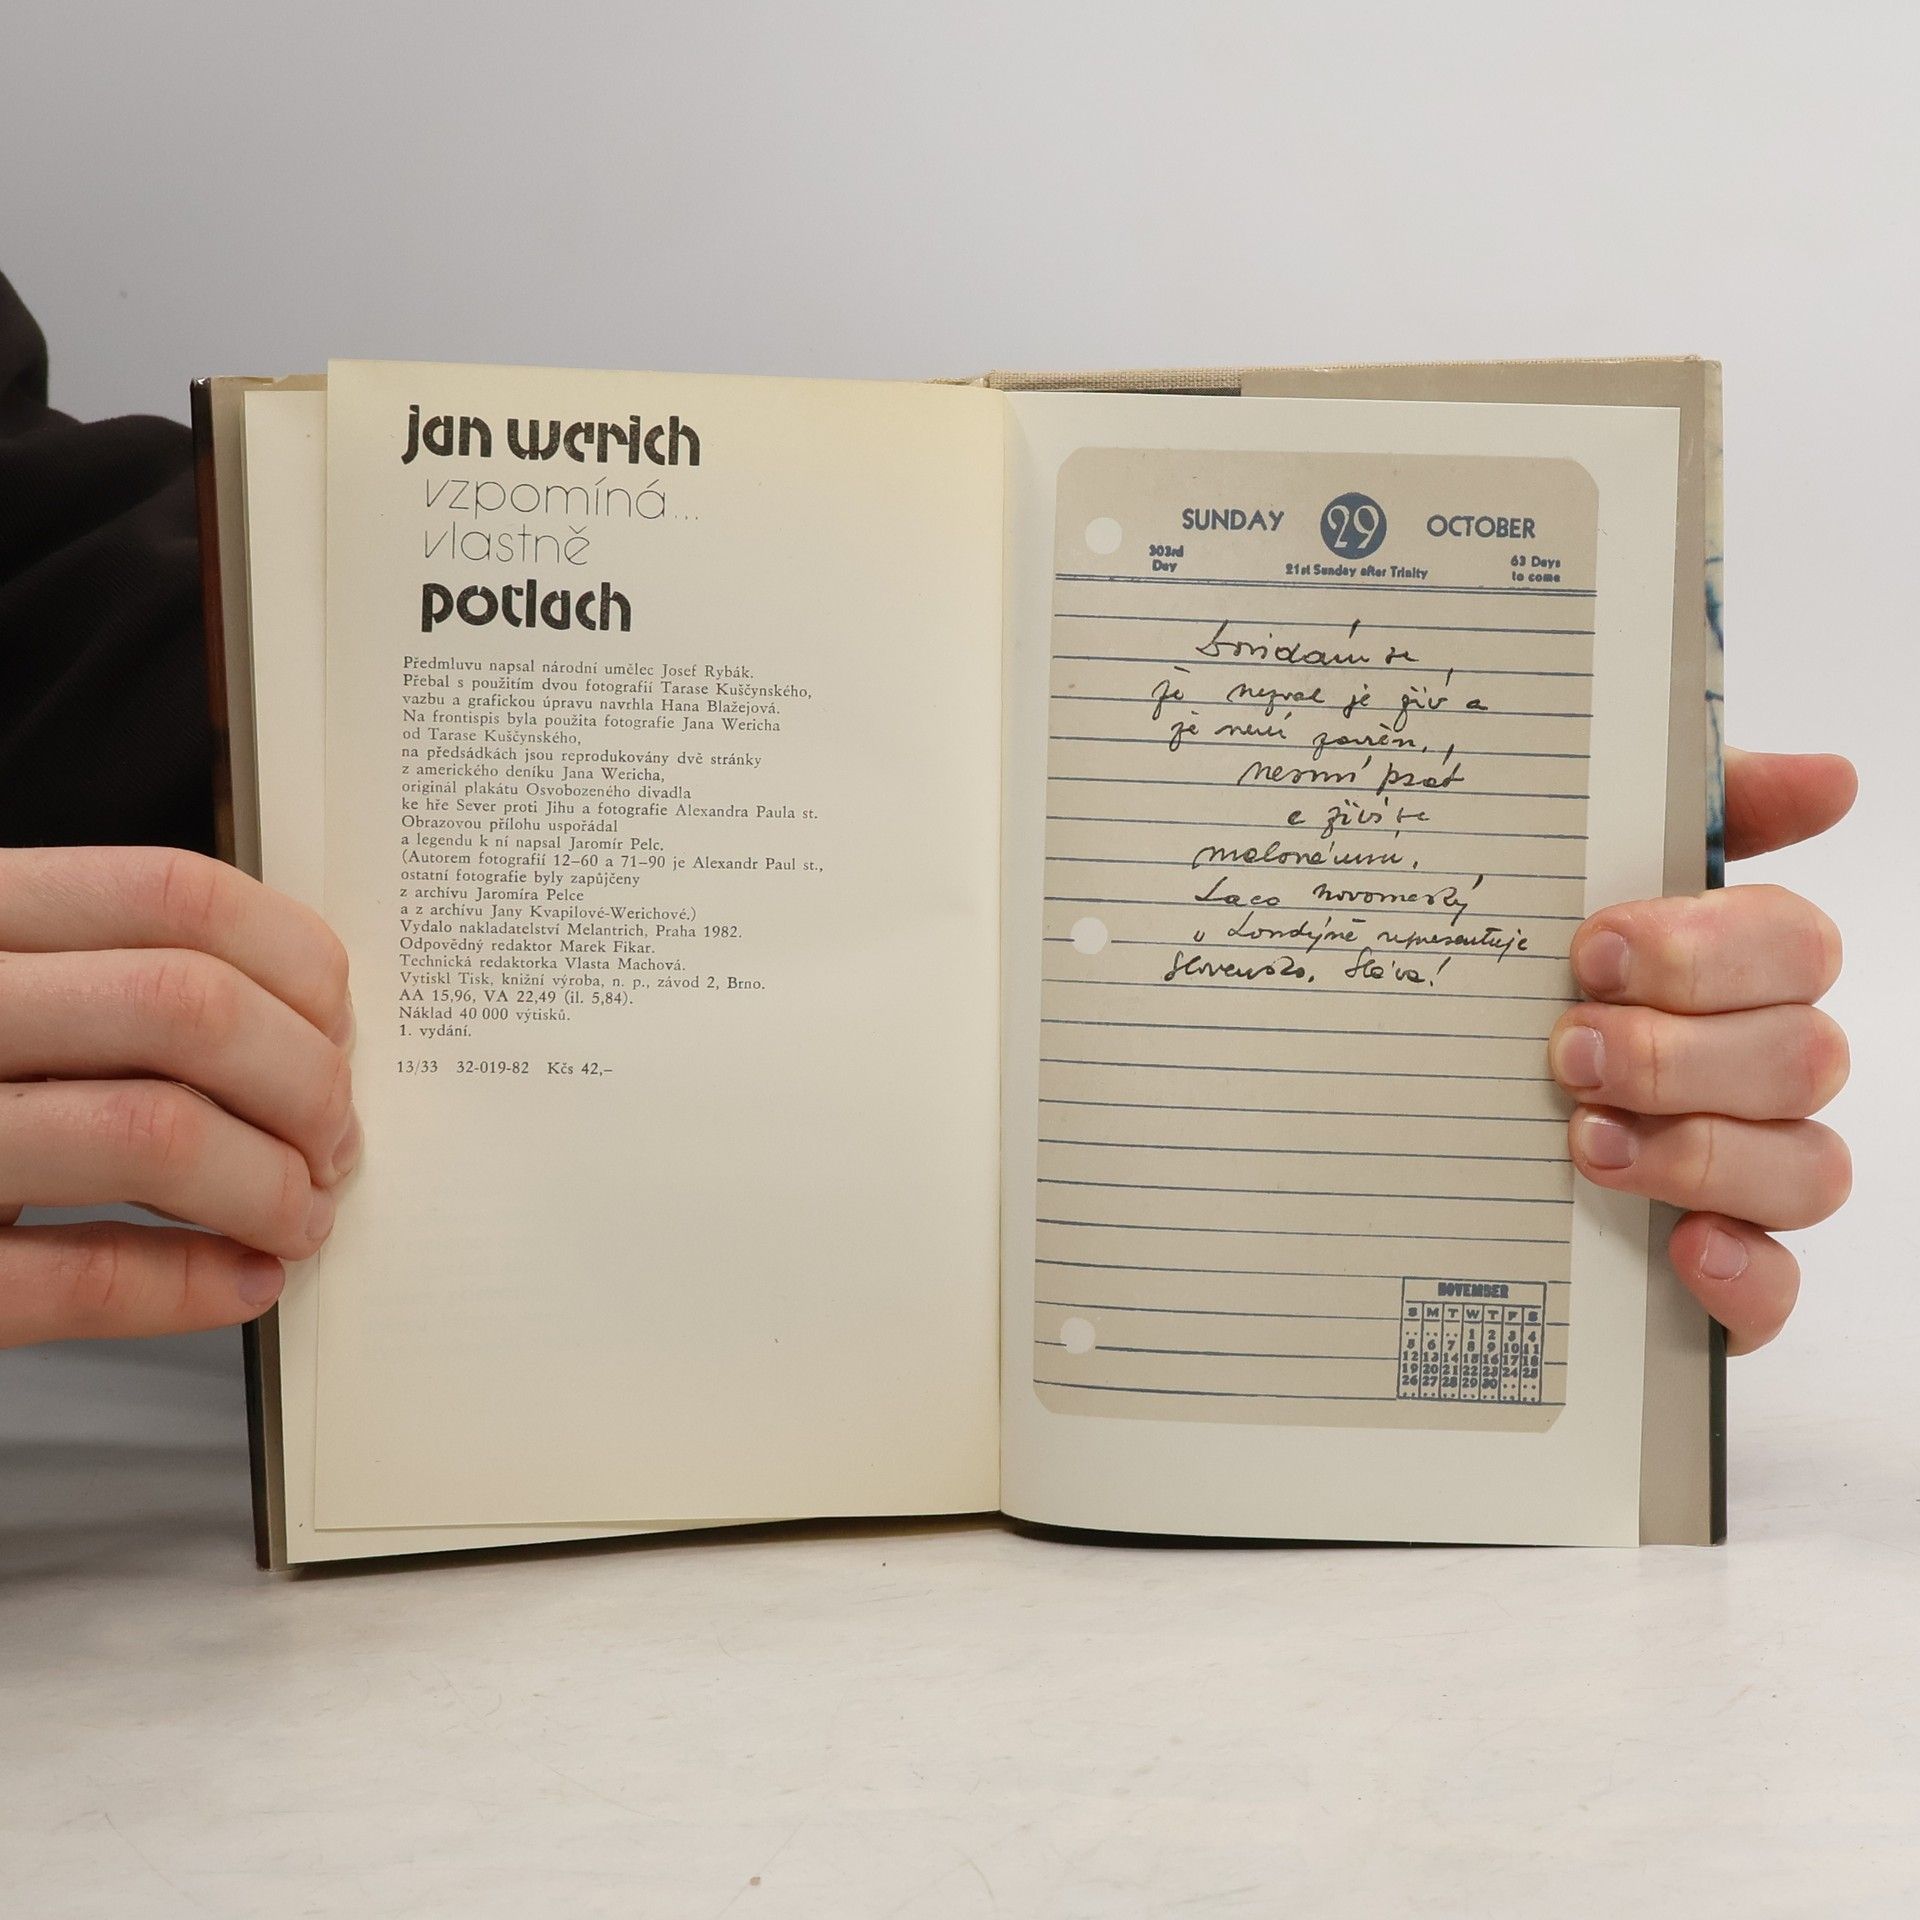 jan werich
vzpomíná...
vlastně
potlach
Předmluvu napsal národní umělec Josef Rybák.
Přebal s použitím dvou fotografií Tarase Kuščynského,
vazbu a grafickou úpravu navrhla Hana Blažejová.
Na frontispis byla použita fotografie Jana Wericha
od Tarase Kuščynského,
na předsádkách jsou reprodukovány dvě stránky
z amerického deníku Jana Wericha,
originál plakátu Osvobozeného divadla
ke hře Sever proti Jihu a fotografie Alexandra Paula st.
Obrazovou přílohu uspořádal
a legendu k ní napsal Jaromír Pelc.
(Autorem fotografií 12–60 a 71–90 je Alexandr Paul st.,
ostatní fotografie byly zapůjčeny
z archívu Jaromíra Pelce
a z archívu Jany Kvapilové-Werichové.)
Vydalo nakladatelství Melantrich, Praha 1982.
Odpovědný redaktor Marek Fikar.
Technická redaktorka Vlasta Machová.
Vytiskl Tisk, knižní výroba, n. p., závod 2, Brno.
AA 15,96, VA 22,49 (il. 5,84).
Náklad 40 000 výtisků.
1. vydání.
13/33 32-019-82 Kčs 42,–
SUNDAY 29 OCTOBER
303rd Day
21st Sunday after Trinity
63 Days to come
Dovídám se,
že nezval je živ a
že není zavřen,
nesmí psát
a živí se
malováním.
Laco Novomeský
v Londýně representuje
Slovensko. Sláva!
NOVEMBER
S M T W T F S
.. .. .. 1 2 3 4
5 6 7 8 9 10 11
12 13 14 15 16 17 18
19 20 21 22 23 24 25
26 27 28 29 30 .. ..
.. .. .. .. .. .. ..